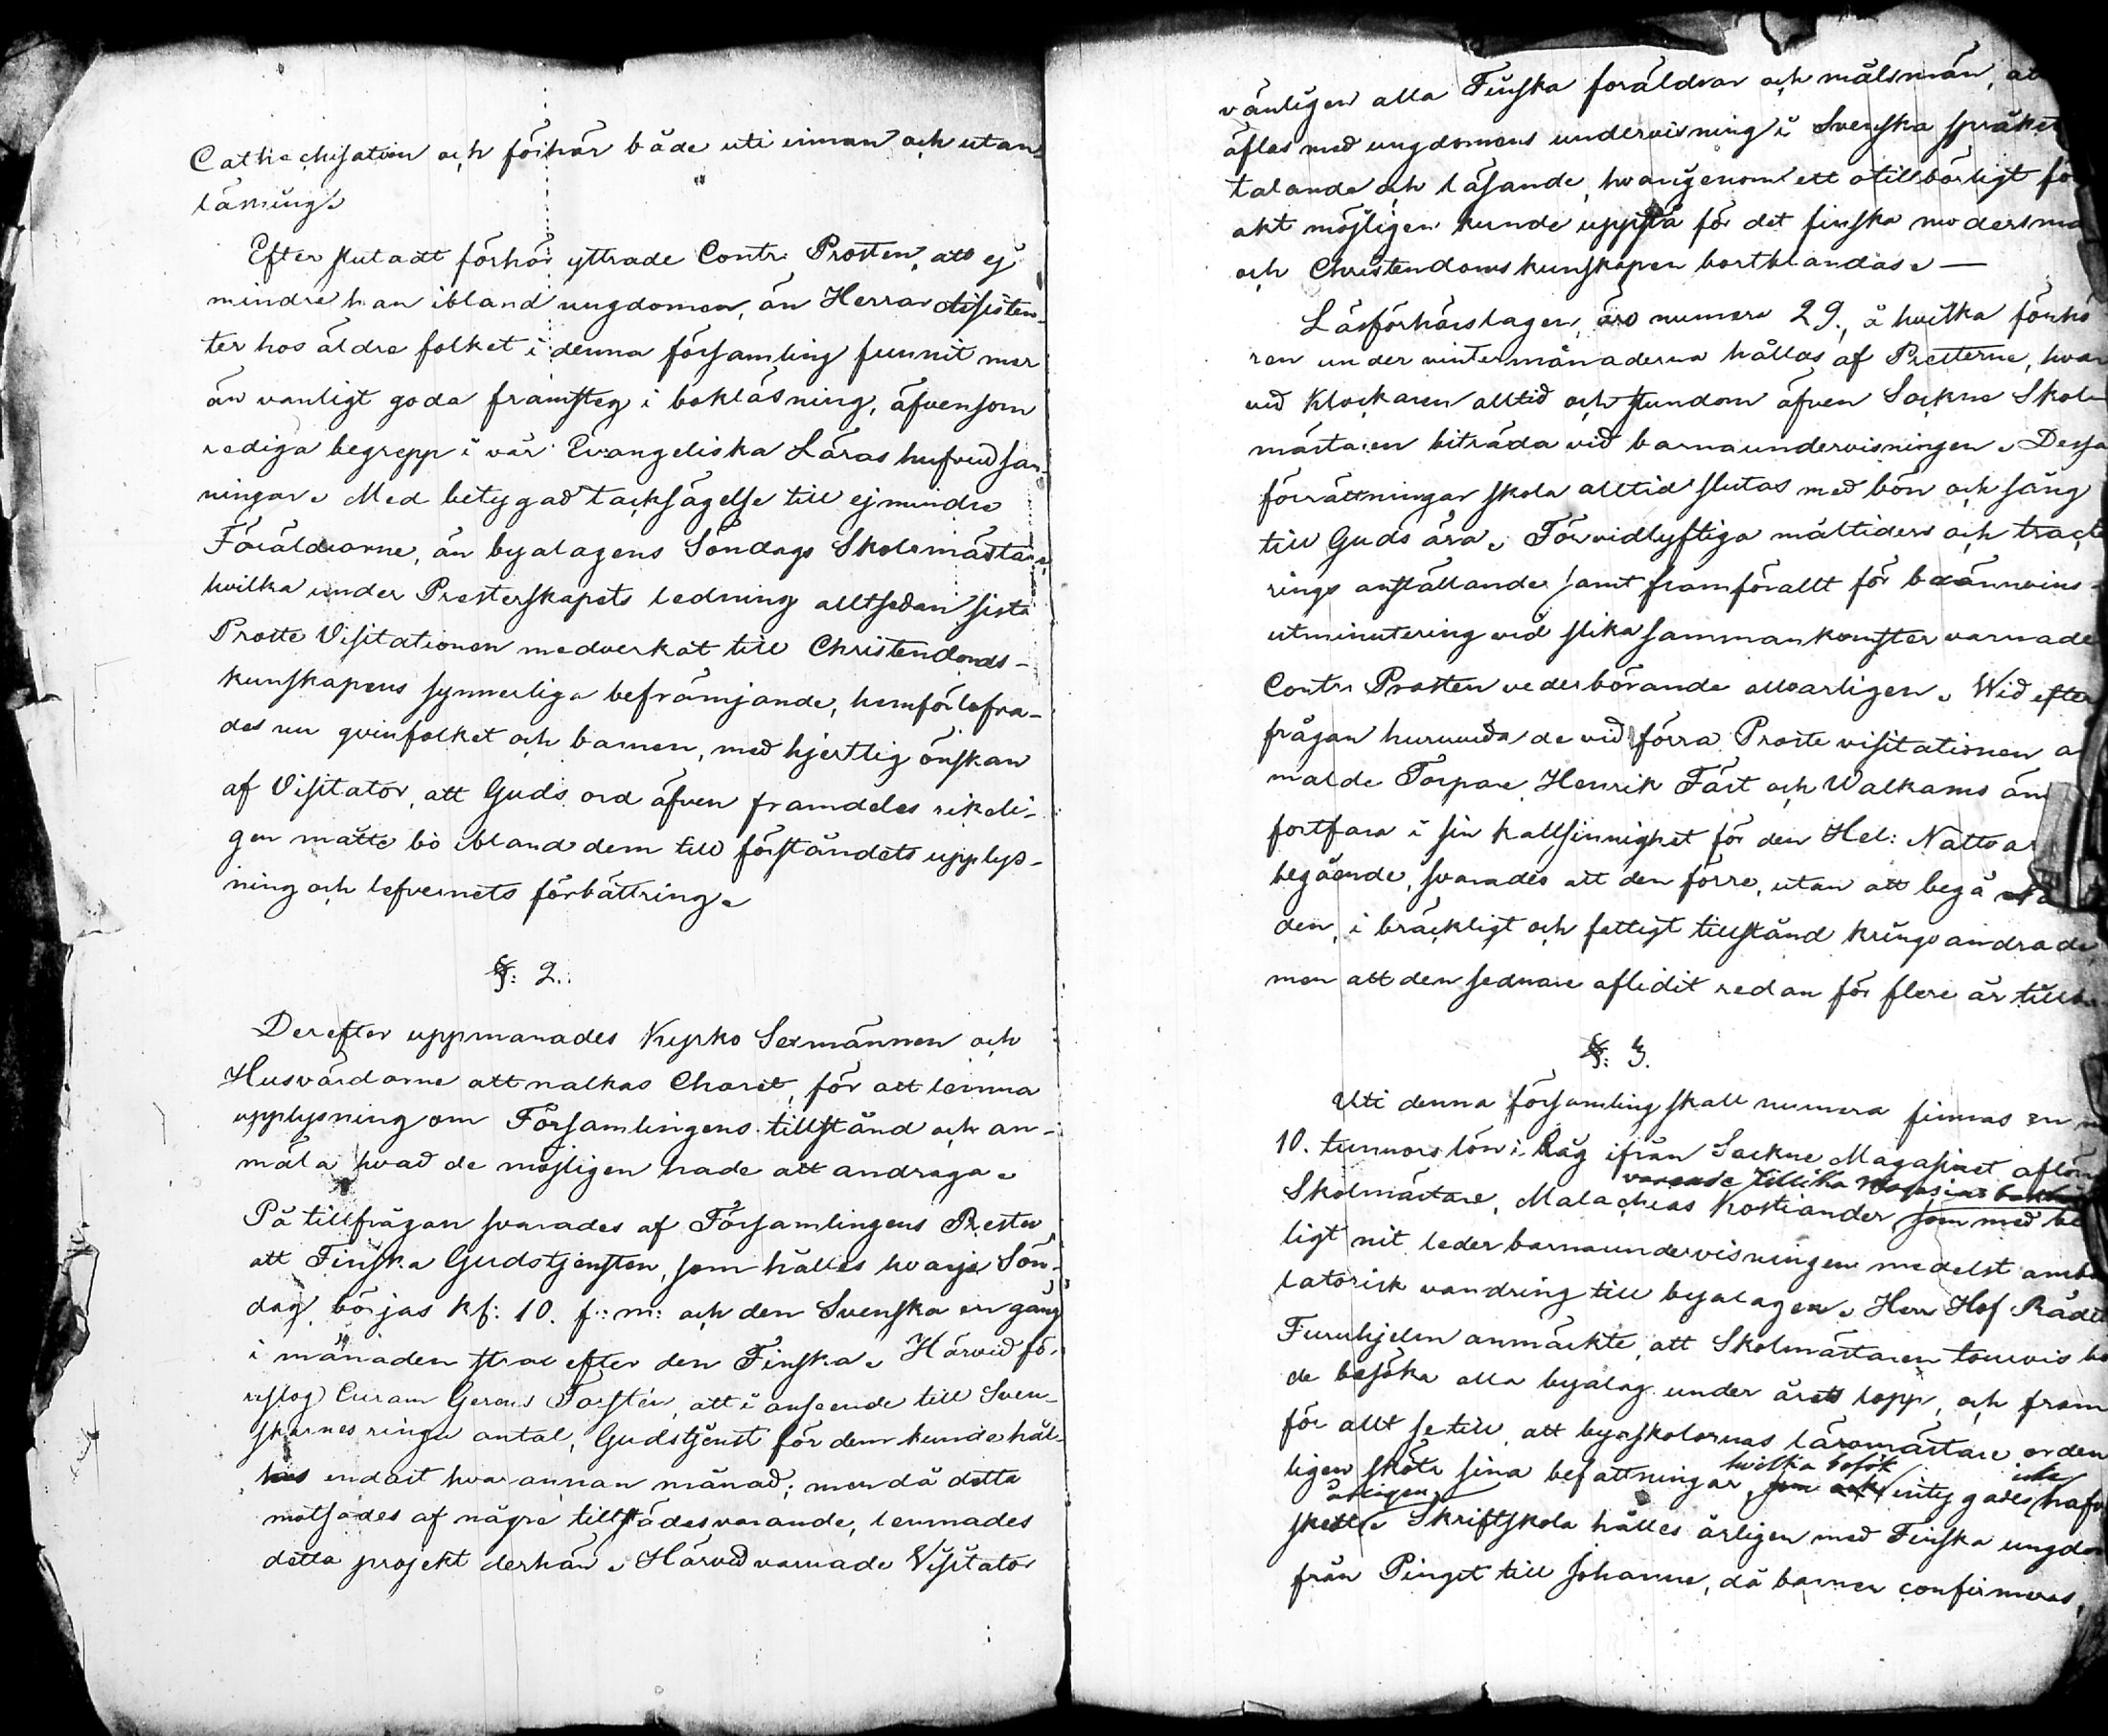 Cathechisation och förhör både uti innan och utan
läsning.
Efter slutadt förhör yttrade Contr. Prosten, att ej
mindre han ibland ungdomen, än Herrar Assisten-
ter hos äldre folket i denna församling funnit mer
än vanligt goda framsteg i bokläsning, äfvensom
rediga begrepp i vår Evangeliska Läras hufvudsan-
ningar. Med betygad tacksägelse till ej mindre
Föräldrarne, än byalagens Söndags Skolemästare,
hvilka under Presterskapets ledning alltsedan sista
Proste Visitationen medverkat till Christendoms-
kunskapens synnerliga befrämjande, hemförlofva-
des nu qvinfolket och barnen, med hjertlig önskan
af Visitator, att Guds ord äfven framdeles rikeli-
gen måtte bo ibland dem till förståndets upplys-
ning och lefvernets förbättring.
§: 2.
Derefter uppmanades Kyrko Sexmännen och
Husvärdarne att nalkas Choret, för att lemna
upplysning om Församlingens tillstånd och an-
mäla hvad de möjligen hade att andraga.
På tillfrågan svarades af Församlingens Prester,
att Finska Gudstjensten, som hålles hvarje Sön-
dag, börjas kl: 10. f: m: och den Svenska en gång
i månaden strax efter den Finska. Härvid fö-
reslog Curam Gerens Forstén, att i anseende till Sven-
skarnes ringa antal, Gudstjenst för dem kunde hål-
las endast hvar annan månad; men då detta
motsades af några tillstädesvarande, lemnades
detta projekt derhän. Härvid varnade Visitator
vänligen alla Finska föräldrar och målsmän, at
äflas med ungdomens undervisning i Svenska språket
talande och läsande, hvarigenom ett otillbörligt för
akt möjligen kunde uppstå för det finska modersmå
och Christendomskunskapen bortblandas. —
Läsförhörslagen, äro numera 29., å hvilka förhö
ren under vintermånaderna hållas af Presterne, hvar
vid Klockaren alltid och stundom äfven Sockne Skol-
mästaren biträda vid barnaundervisningen. Dessa
förrättningar skola alltid slutas med bön och sång
till Guds ära. För vidlyftiga måltiders och tracte
rings anställande samt framförallt för bränvins-
utminutering vid slika sammankomster varnade
Contr. Prosten vederbörande allvarligen. Wid efter
frågan huruvida de vid förra Proste visitationen a
malde Torpare Henrik Färt och Walkams än
fortfara i sin kallsinnighet för den Hel: Nattva
begående, svarades att den förre, utan att begå
den, i bräckligt och fattigt tillstånd kringvandrade,
men att den sednare aflidit redan för flere år tillba
§: 3.
Uti denna församling skall numera finnas en m
10. tunnors lön i Råg ifrån Sockne Magasinet aflön
varande tillika
Skolmästare, Malachias Kostiander som med be
ligt nit leder barnaundervisningen medelst ambu
latorisk vandring till byalagen. Herr Hof Rådet
Furuhjelm anmärkte, att Skolmästaren tourvis bo
de besöka alla byalag under årets lopp, och fram
för allt se till, att byaskolornas läromästare orden
ligen sköte sina befattningar, hvilka besök intygades icke hafv
årligen
skett. Skriftskola hålles årligen med Finska ungdo
från Pingst till Johanne, då barnen confirmeras,